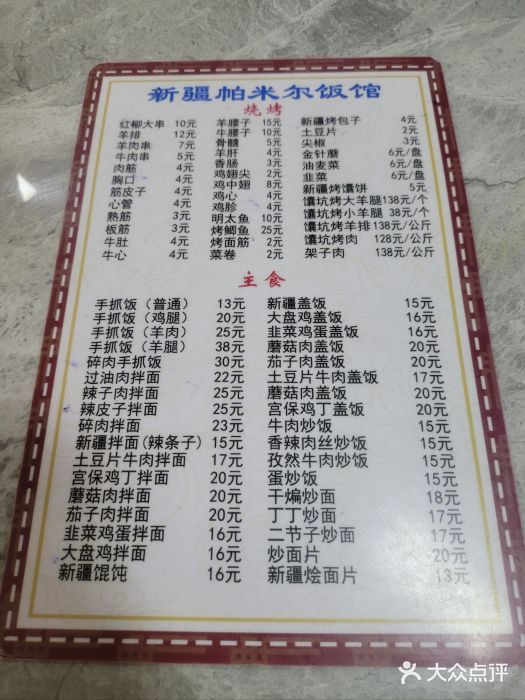 新疆帕米尔饭馆
烧烤
红柳大串 10元
羊排 12元
羊肉串 7元
牛肉串 5元
肉筋 4元
胸口 4元
筋皮子 4元
心管 4元
熟筋 3元
板筋 3元
牛肚 4元
牛心 4元
羊腰子 15元
牛腰子 10元
骨髓 5元
羊肝 4元
香肠 3元
鸡翅尖 2元
鸡中翅 8元
鸡心 4元
鸡胗 4元
明太鱼 10元
烤鲫鱼 25元
烤面筋 2元
菜卷 2元
新疆烤包子 4元
土豆片 2元
尖椒 3元
金针蘑 6元/盘
油麦菜 6元/盘
韭菜 6元/盘
新疆烤馕饼 5元
馕坑烤大羊腿 138元/个
馕坑烤小羊腿 38元/个
馕坑烤羊排 138元/公斤
馕坑烤肉 128元/公斤
架子肉 138元/公斤
主食
手抓饭（普通） 13元
手抓饭（鸡腿） 20元
手抓饭（羊肉） 25元
手抓饭（羊腿） 38元
碎肉手抓饭 30元
过油肉拌面 22元
辣子肉拌面 25元
辣皮子拌面 25元
碎肉拌面 23元
新疆拌面(辣条子) 15元
土豆片牛肉拌面 17元
宫保鸡丁拌面 20元
蘑菇肉拌面 20元
茄子肉拌面 20元
韭菜鸡蛋拌面 16元
大盘鸡拌面 16元
新疆馄饨 16元
新疆盖饭 15元
大盘鸡盖饭 16元
韭菜鸡蛋盖饭 16元
蘑菇肉盖饭 20元
茄子肉盖饭 20元
土豆片牛肉盖饭 17元
蘑菇肉盖饭 20元
宫保鸡丁盖饭 20元
牛肉炒饭 15元
香辣肉丝炒饭 15元
孜然牛肉炒饭 15元
蛋炒饭 15元
干煸炒面 18元
丁丁炒面 17元
二节子炒面 17元
炒面片 20元
新疆烩面片 13元
大众点评